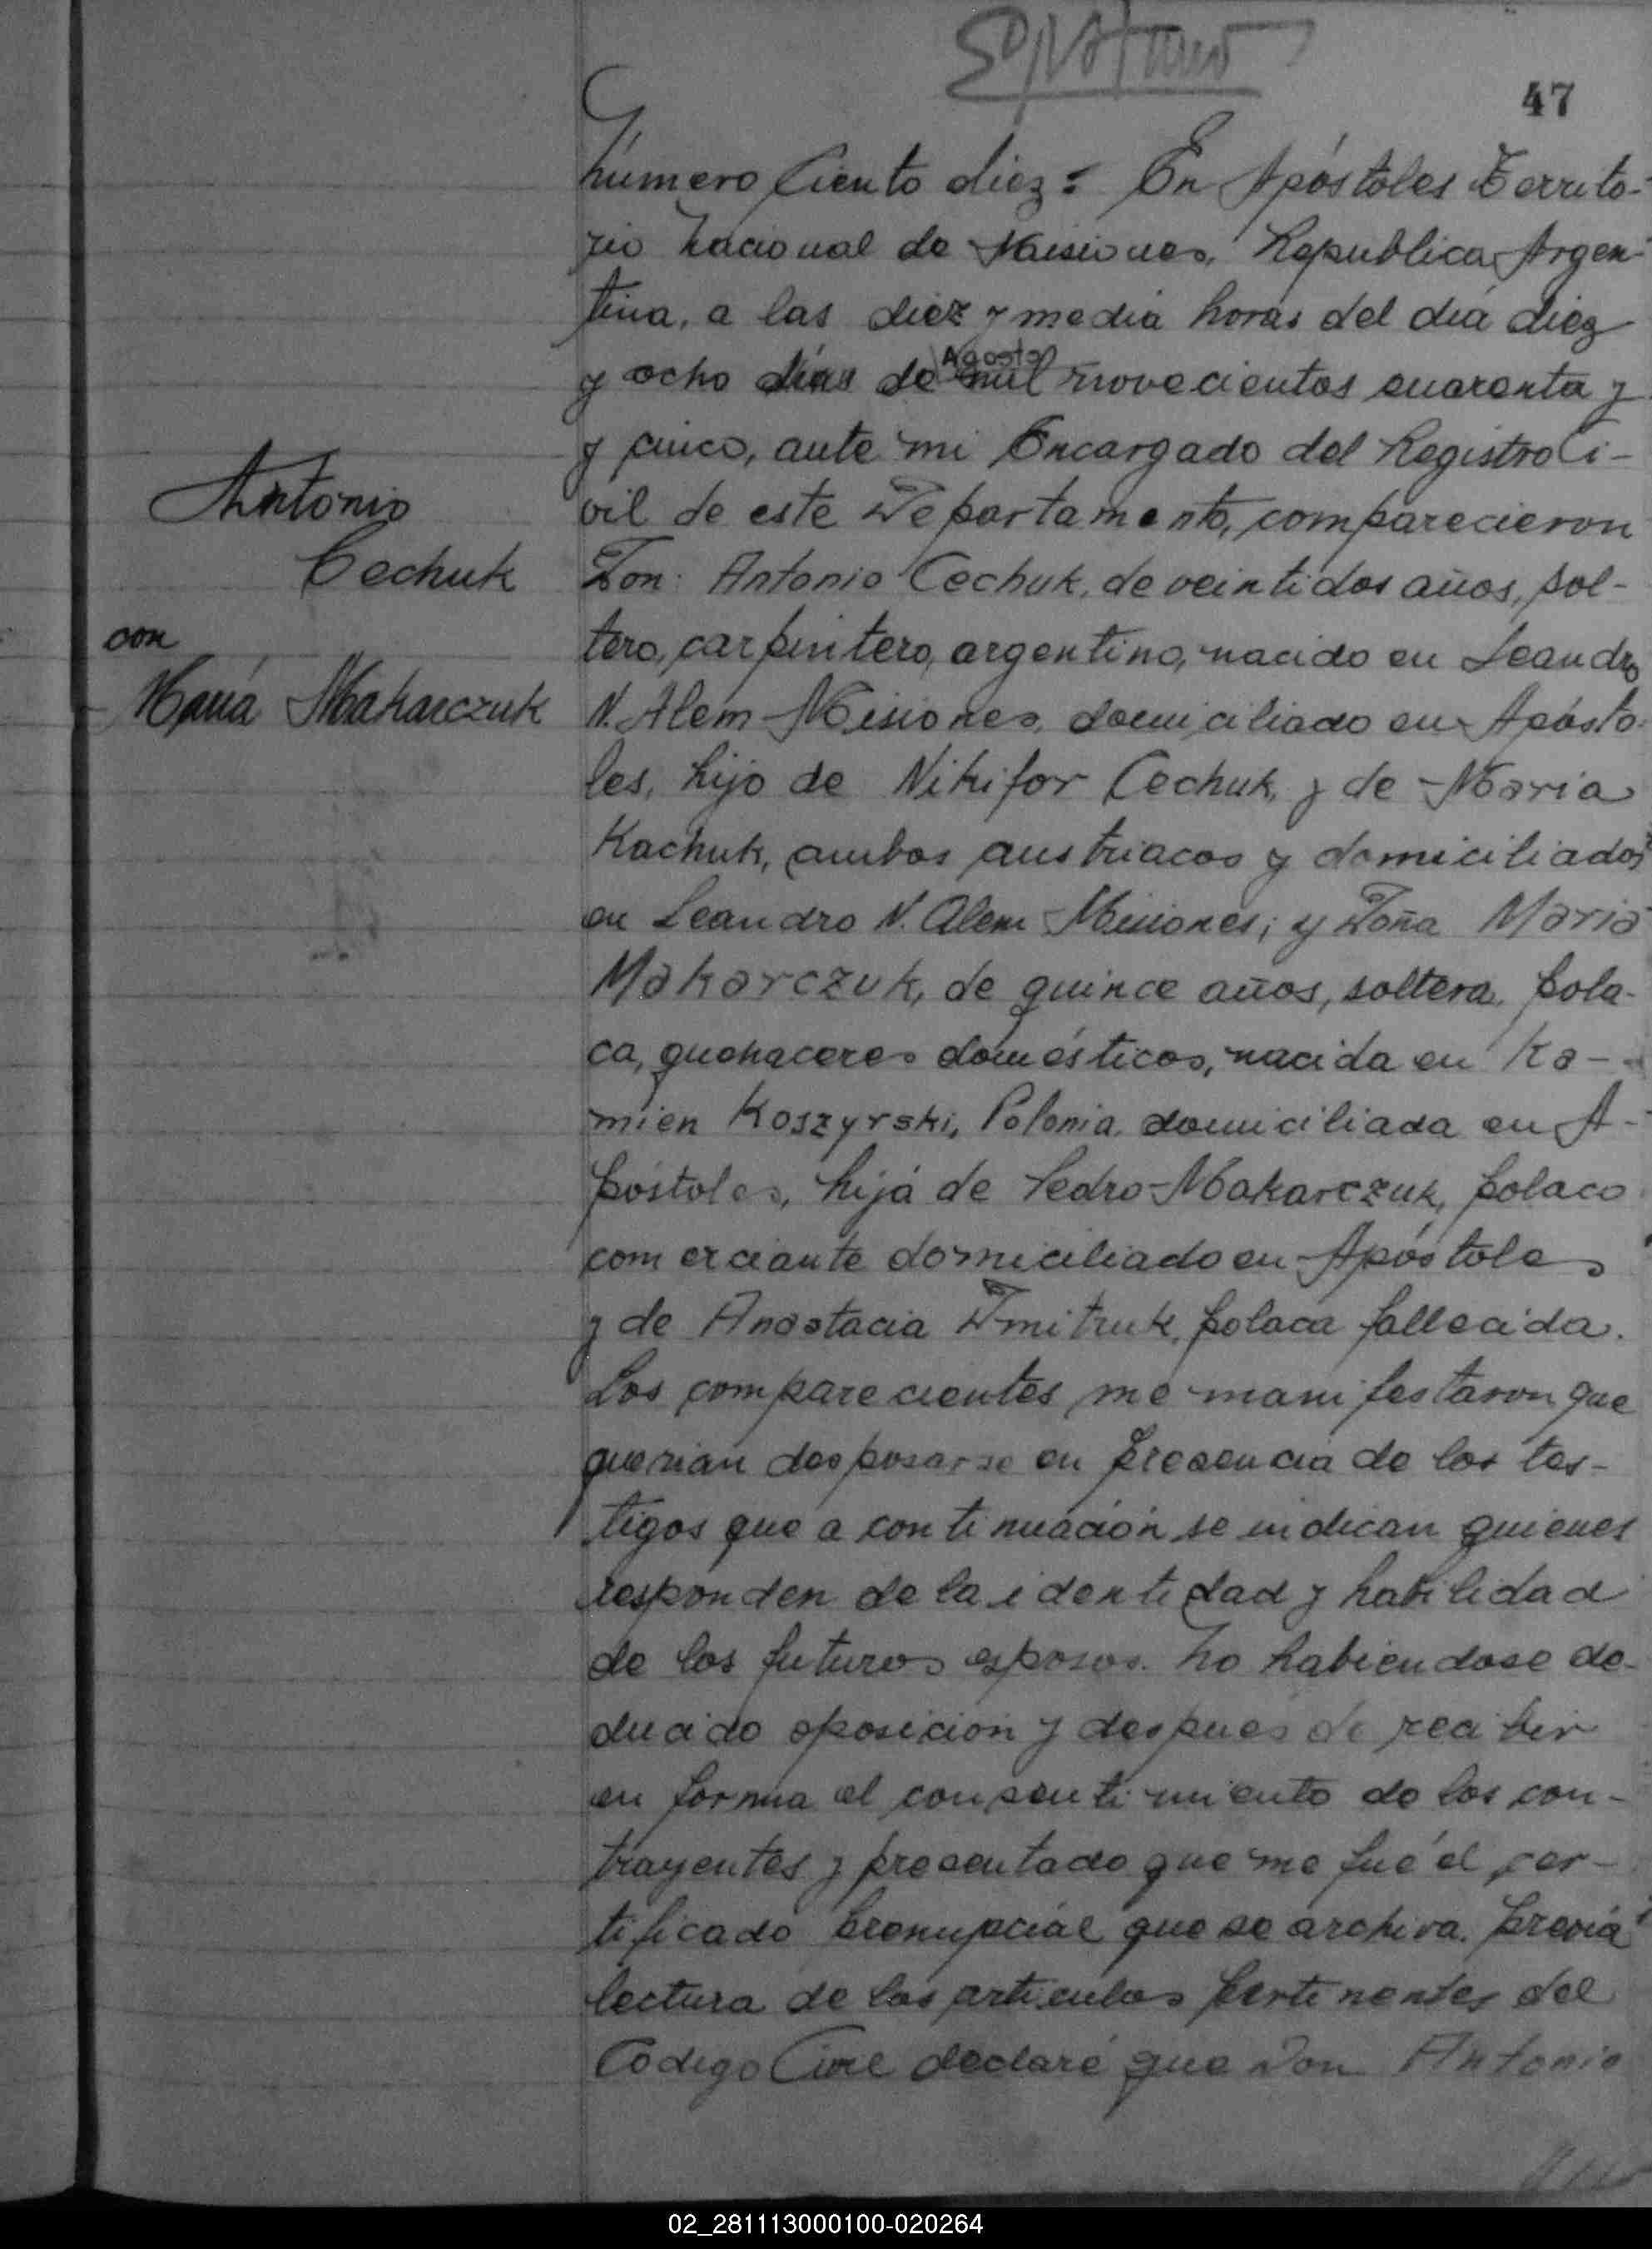 47
Número Ciento diez = En Apóstoles Territo-
rio Nacional de Misiones, Republica Argen-
tina, a las diez y media horas del día diez
Agosto
y ocho días de mil novecientos cuarenta y
y cinco, ante mi Encargado del Registro Ci-
vil de este Departamento, comparecieron
Don: Antonio Cechuk, de veintidos años, sol-
tero, carpintero, argentino, nacido en Leandro
N. Alem Misiones, domiciliado en Apósto-
les, hijo de Nikifor Cechuk, y de Maria
Kachuk, ambos austriacos y domiciliados
en Leandro N. Alem Misiones; y Doña Maria
Makarczuk, de quince años, soltera, pola-
ca, quehaceres domésticos, nacida en Ka-
mien Koszyrski, Polonia, domiciliada en A-
póstoles, hija de Pedro Makarczuk, polaco
comerciante domiciliado en Apóstoles
y de Anastacia Dmitruk, polaca fallecida.
Los comparecientes me manifestaron que
querian desposarse en presencia de los tes-
tigos que a continuación se indican quienes
responden de la identidad y habilidad
de los futuros esposos. No habiendose de-
ducido oposición y despues de recibir
en forma el consentimiento de los con-
trayentes y presentado que me fué el cer-
tificado prenupcial que se archiva. Previa
lectura de los articulos pertinentes del
Codigo Civil declaré que Don Antonio
Antonio
Cechuk
con
María Makarczuk
02_281113000100-020264